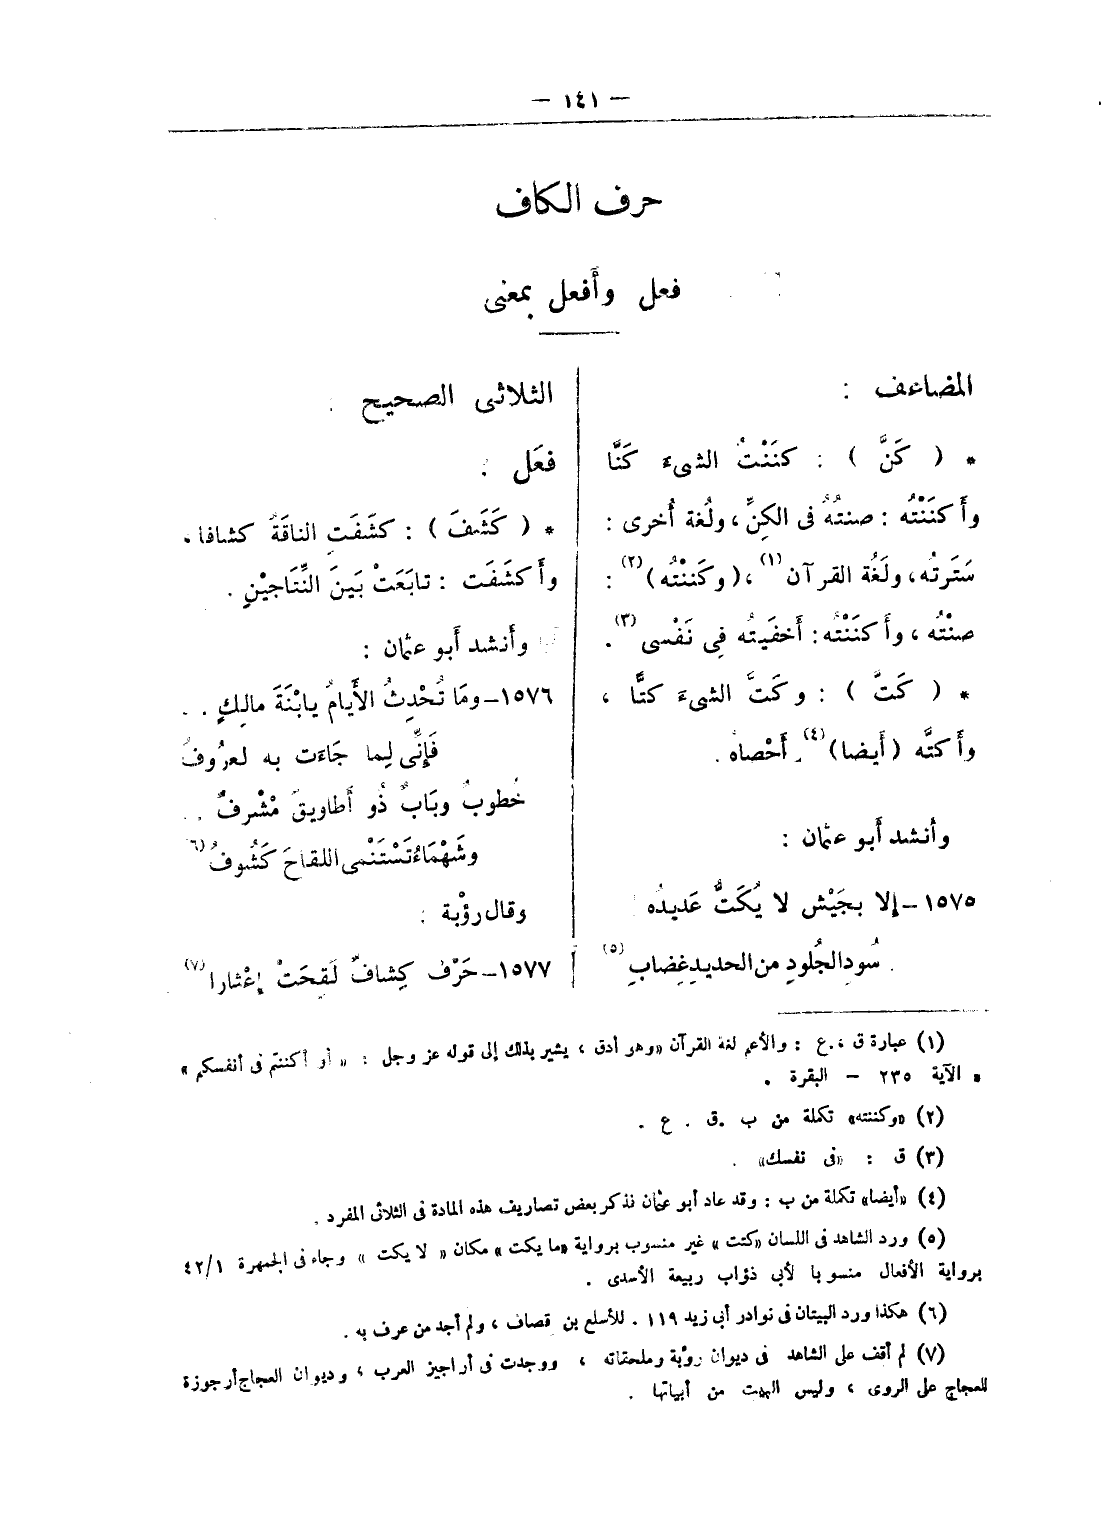 — ١٤١ —
حرف الكاف
فعل وأَفعل بمعنى
المضاعف :
* ( كَنَّ ) : كنَنْتُ الشىء كَنًّا
وأَكنَنْتُه : صنتُهُ فى الكِنِّ ، ولُغة أُخرى :
سَتَرتْه ، ولَغُة القرآن (١) ، ( وكَننْتُه ) (٢) :
صنْتُه ، وأَكنَنْتُه : أَخفَيتُه فِى نَفْسى (٣) .
* ( كَتَّ ) : وكَتَّ الشىءَ كتًّا ،
وأَكتَّه (أَيضا) (٤) . أَحْصاه .
وأنشد أَبو عثمان :
١٥٧٥ – إِلا بجَيْش لا يُكَتُّ عَديدُه
سُودِ الجُلودِ من الحديدِ غِضابِ (٥) .
الثلاثى الصحيح :
فعَل :
* ( كَشَفَ ) : كشَفَتِ الناقَةُ كشافا ،
وأَكشَفَت : تابَعَتْ بَينَ النِّتَاجيْنِ .
وأَنشد أَبو عثمان :
١٥٧٦ – ومَا تُحْدِثُ الأَيامُ يابْنَةَ مالِكٍ . .
فَإِنِّى لِما جَاءَت به لعرُوفُ
خُطوبٌ وبَابٌ ذُو أَطاويقَ مُشْرفٌ . .
وشَهْمَاءُ تَسْتَنْمى اللقاحَ كَشُوفُ (٦)
وقال رؤْبة :
١٥٧٧ – حَرْف كِشافٌ لَقِحَتْ إِعْثارا (٧)
(١) عبارة ق ، ع : والأعم لغة القرآن «وهو أدق ، يشير بذلك إلى قوله عز وجل : « أو أكننتم فى أنفسكم »
الآية ٢٣٥ – البقرة .
(٢) «وكننته» تكملة من ب . ق . ع .
(٣) ق : «فى نفسك» .
(٤) «أيضا» تكملة من ب : وقد عاد أبو عثمان نذكر بعض تصاريف هذه المادة فى الثلاثى المفرد .
(٥) ورد الشاهد فى اللسان «كتت» غير منسوب برواية «ما يكت» مكان « لا يكت » وجاء فى الجمهرة ٤٢/١
برواية الأفعال منسوبا لأبى ذؤاب ربيعة الأسدى .
(٦) هكذا ورد البيتان فى نوادر أبى زيد ١١٩ . للأسلع بن قصاف ، ولم أجد من عرف به .
(٧) لم أقف على الشاهد فى ديوان رؤبة وملحقاته ، ووجدت فى أراجيز العرب ، وديوان العجاج أرجوزة
للعجاج على الروى ، وليس البيت من أبياتها .